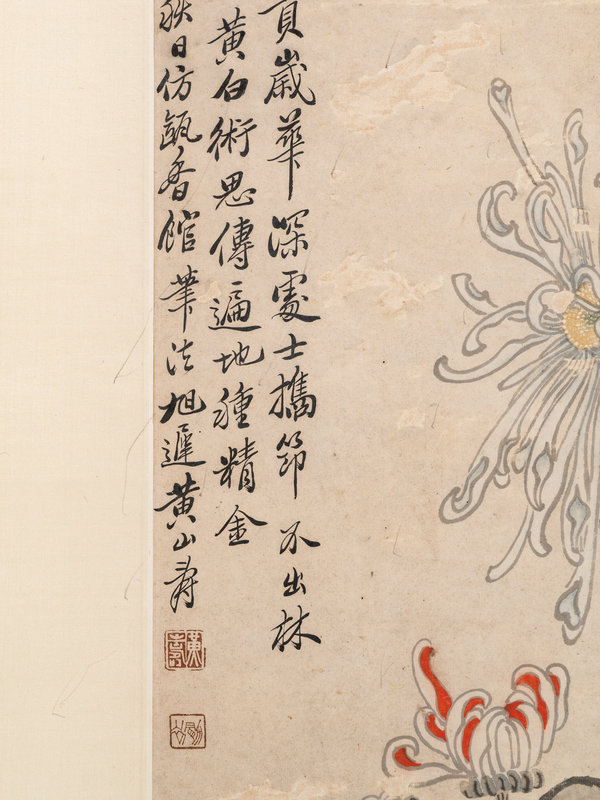 歲華深處士攜筇不出林
黃白術思傳遍地種精金
秋日仿甌香館筆法旭遲黃山壽
黃山壽